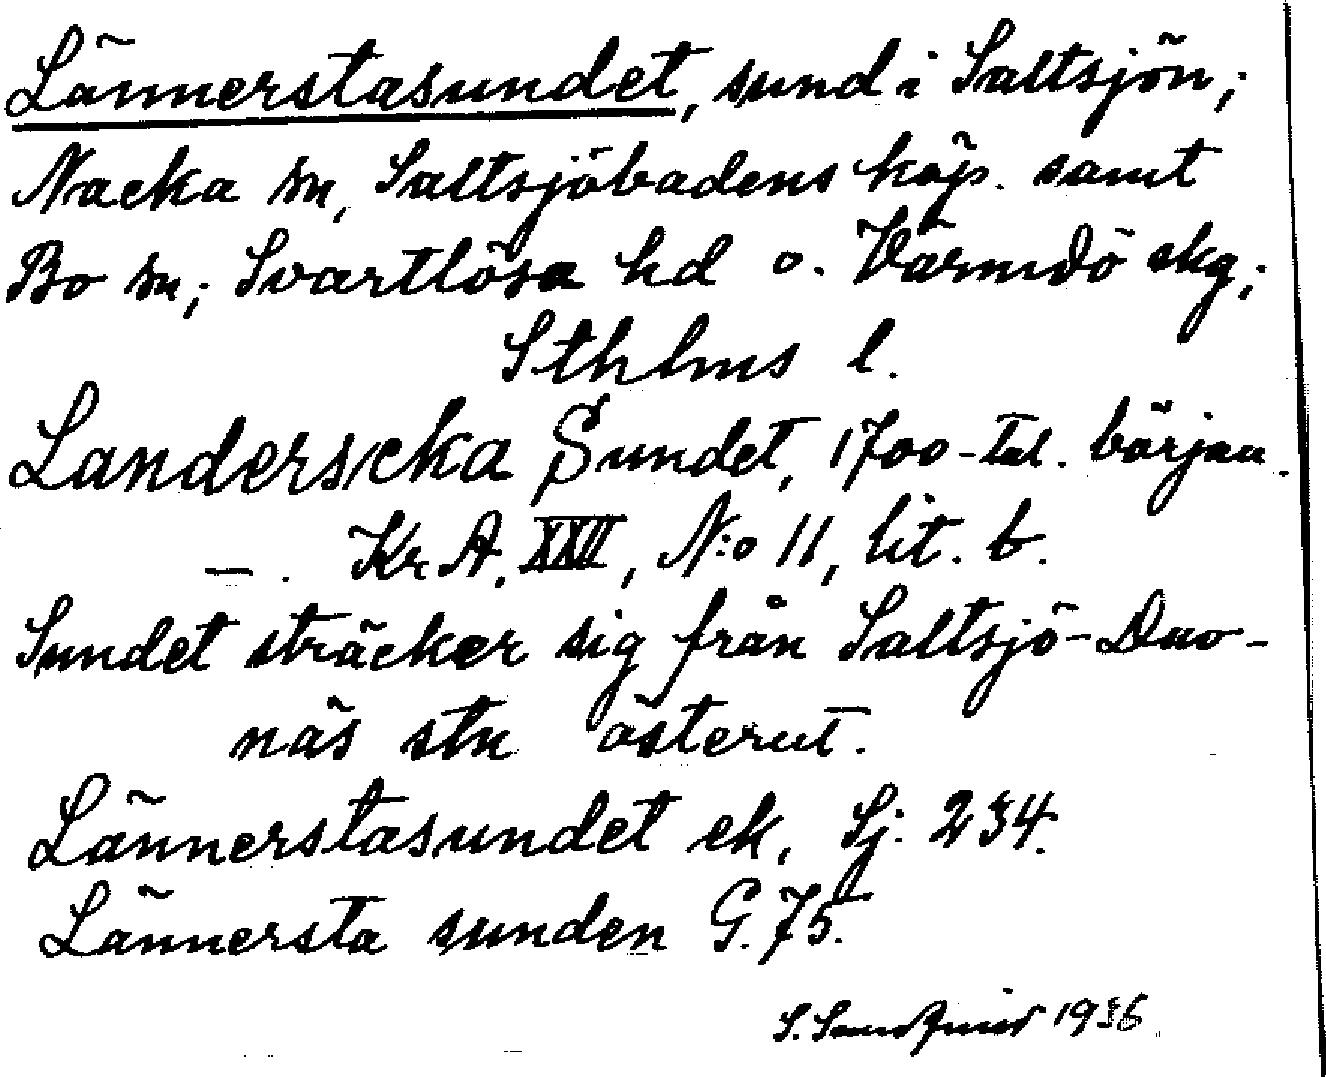 Lännerstasundet, sund i Saltsjön;
Nacka sn, Saltsjöbadens köp. samt
Bo sn; Svartlösa hd o. Värmdö skg;
Sthlms l.
Landerscka Sundet, 1700-tal. början.
—. Kr. A. XXII, N:o 11, lit. b.
Sundet sträcker sig från Saltsjö-Duv-
näs stn österut.
Lännerstasundet ek, Sj. 234.
Lännersta sunden G. 75.
S. 1936